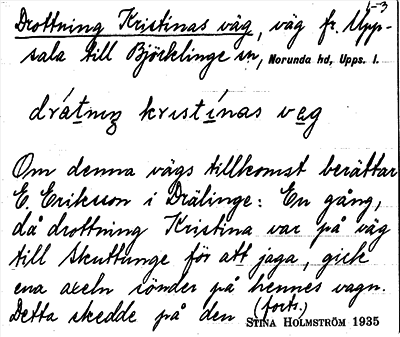 5-3
Drottning Kristinas väg, väg fr. Upp-
sala till Björklinge sn, Norunda hd, Upps. l.
drátniŋ kristínas veg
Om denna vägs tillkomst berättar
E. Eriksson i Drälinge: En gång,
då drottning Kristina var på väg
till Skuttunge för att jaga, gick
ena axeln sönder på hennes vagn.
Detta skedde på den (forts.)
STINA HOLMSTRÖM 1935